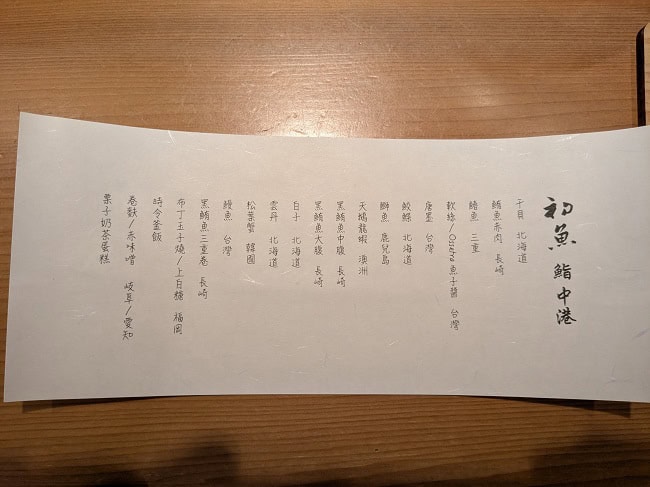 初魚 鮨中港
干貝 北海道
鮪魚赤肉 長崎
鰆魚 三重
軟絲/Ossetra魚子醬 台灣
唐墨 台灣
鮟鱇 北海道
鰤魚 鹿兒島
天鳩龍蝦 澳洲
黑鮪魚中腹 長崎
黑鮪魚大腹 長崎
白子 北海道
雲丹 北海道
松葉蟹 韓國
鰻魚 台灣
黑鮪魚三重卷 長崎
布丁玉子燒/上白糖 福岡
時令釜飯
卷麩/赤味噌 岐阜/愛知
栗子奶茶蛋糕